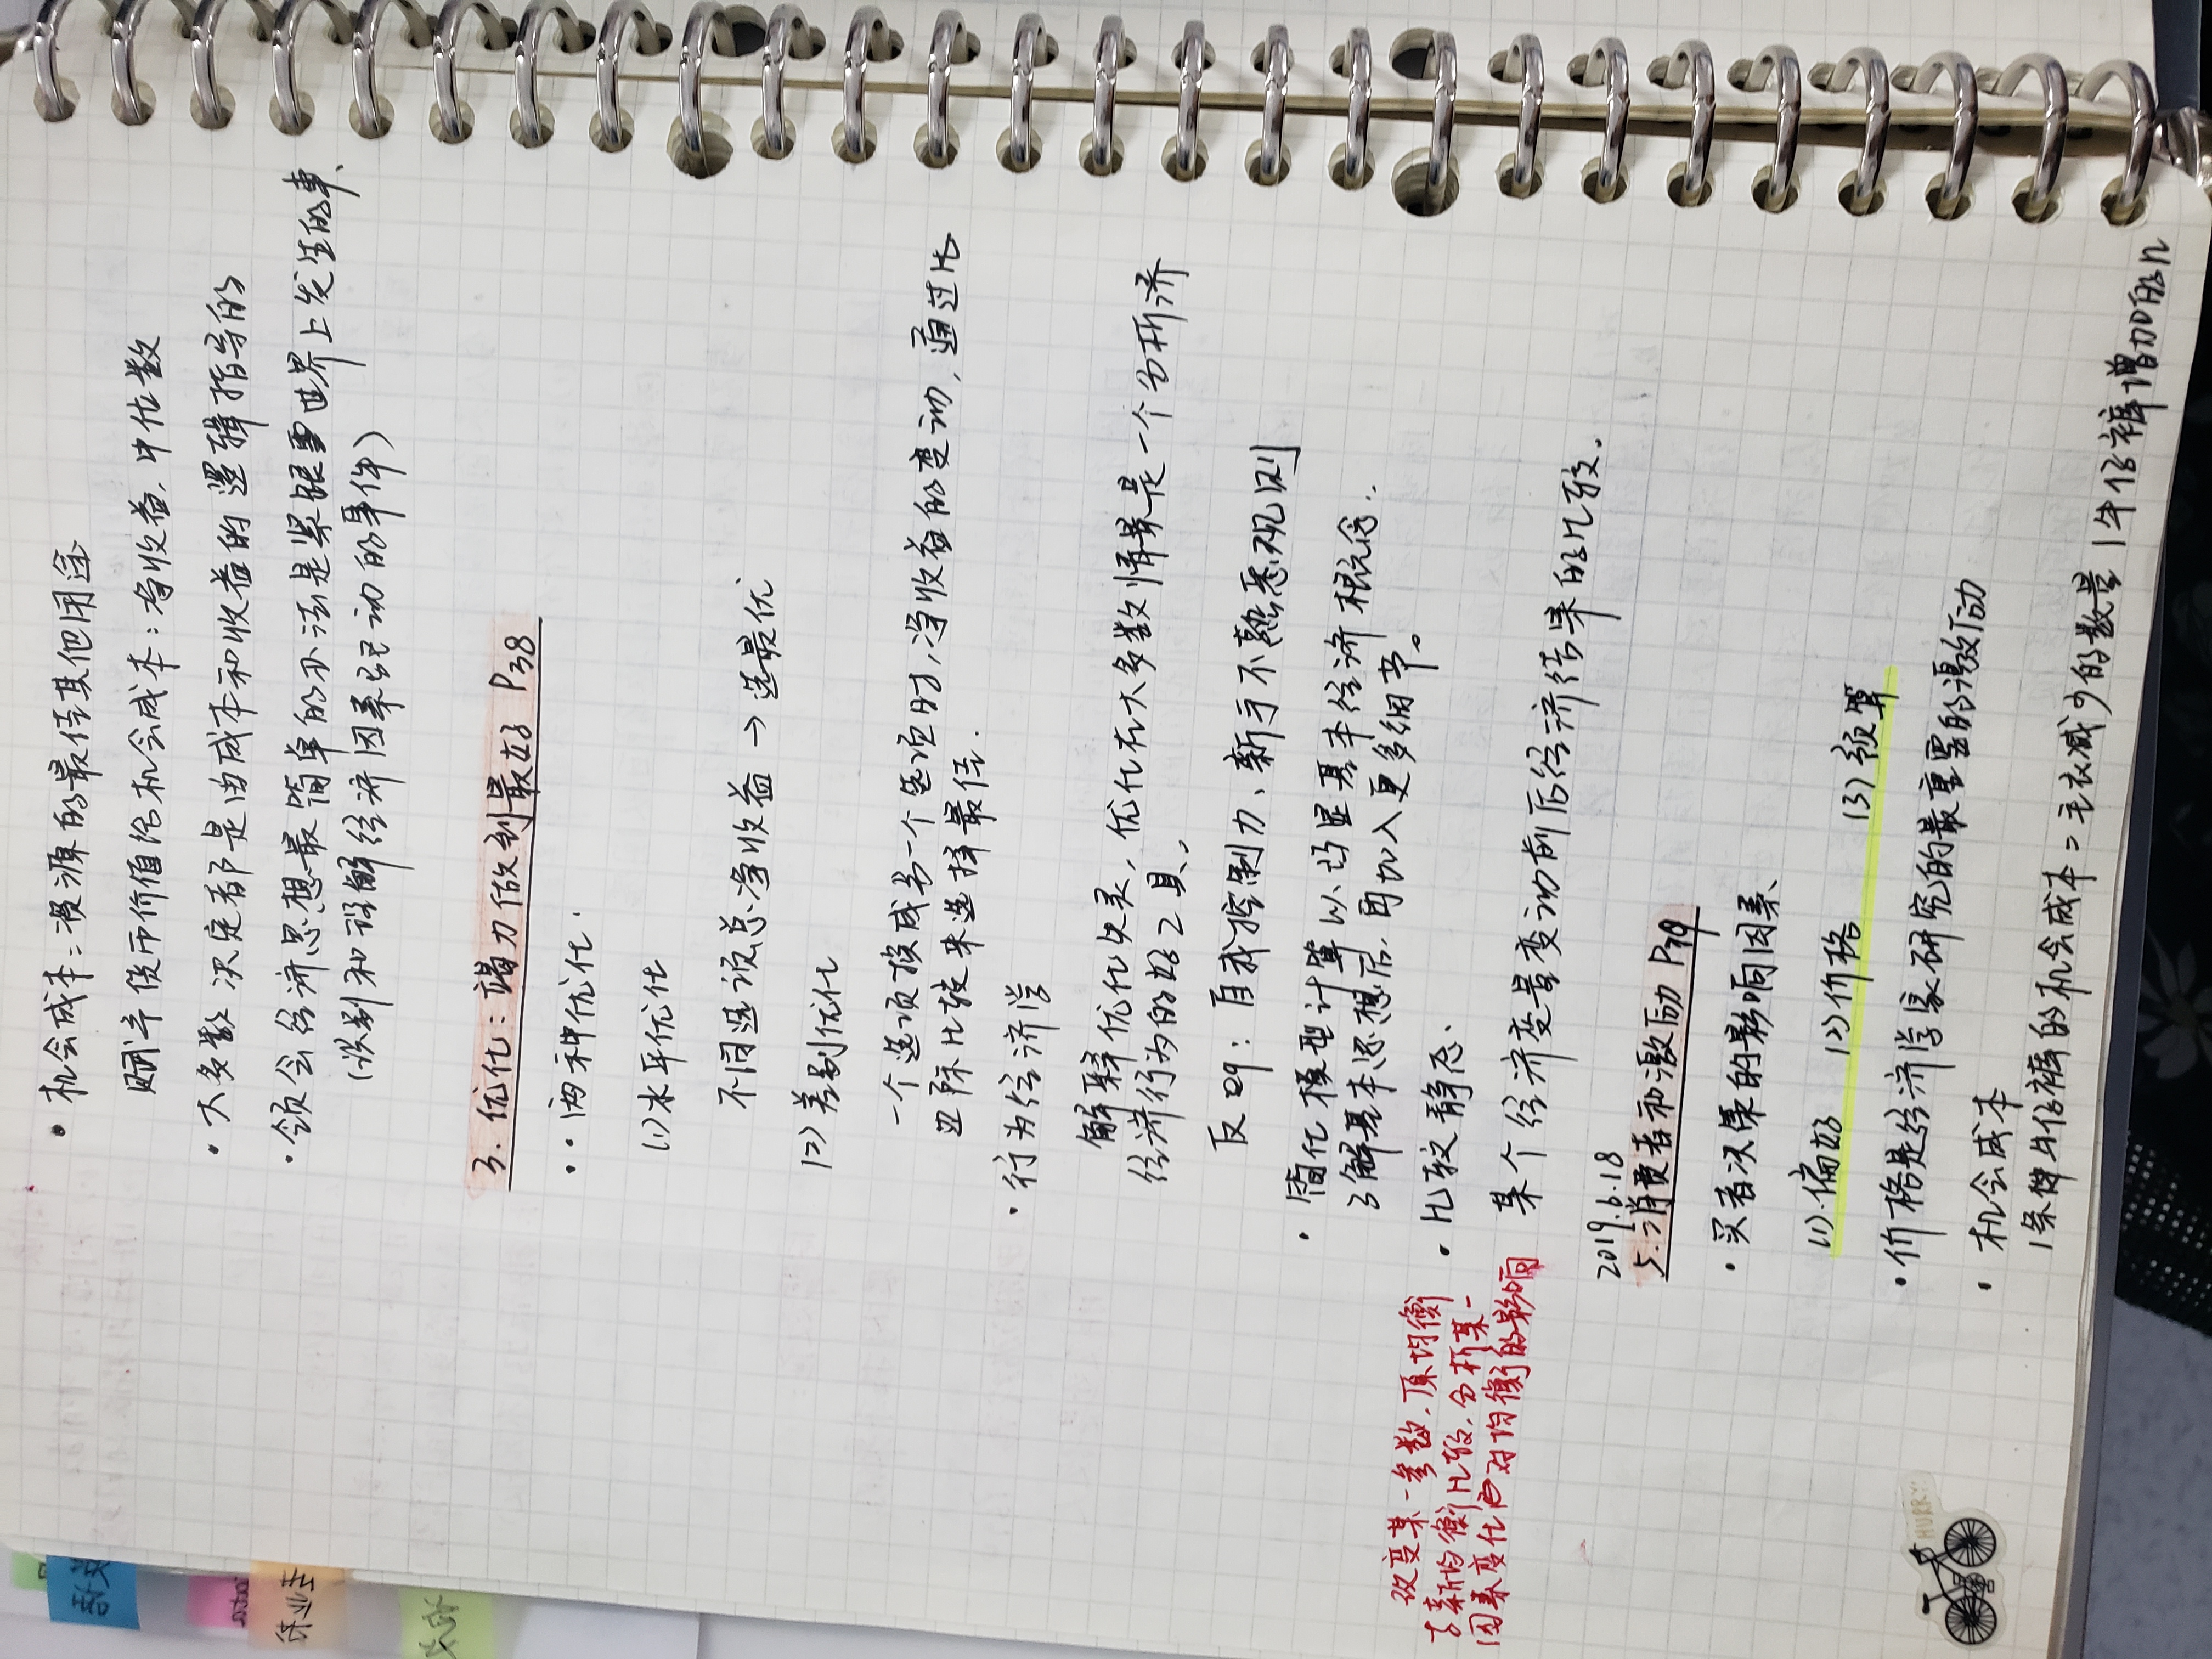 · 机会成本：资源的最佳其他用途
赋予货币价值给机会成本：净收益，中位数
· 大多数决定都是由成本和收益的逻辑指导的
· 领会经济思想最简单的办法是紧跟世界上发生的事、
（识别和理解经济因素驱动的事件）
3. 优化：竭力做到最好 P38
·· 两种优化.
(1) 水平优化
不同选项总净收益 → 选最优
(2) 差别优化
一个选项换成另一个选项时，净收益的变动，通过比
边际比较来选择最佳.
· 行为经济学
解释优化失灵，优化在大多数情景是一个分析济
经济行为的好工具，
反例：自我控制力、新手不熟悉规则
· 简化模型计算以凸显基本经济概念..
了解基本思想后，再加入更多细节。
· 比较静态.
某个经济变量变动前后经济结果的比较.
改变某一参数，原均衡
与新均衡比较，分析某一
因素变化对均衡的影响
2019.6.18
5. 消费者和激励 P79
· 买者决策的影响因素、
(1) 偏好 (2) 价格 (3) 预算
· 价格是经济学家研究的最重要的激励
· 机会成本
1条牛仔裤的机会成本 = 毛衣减少的数量 / 牛仔裤增加的几
HURRY!